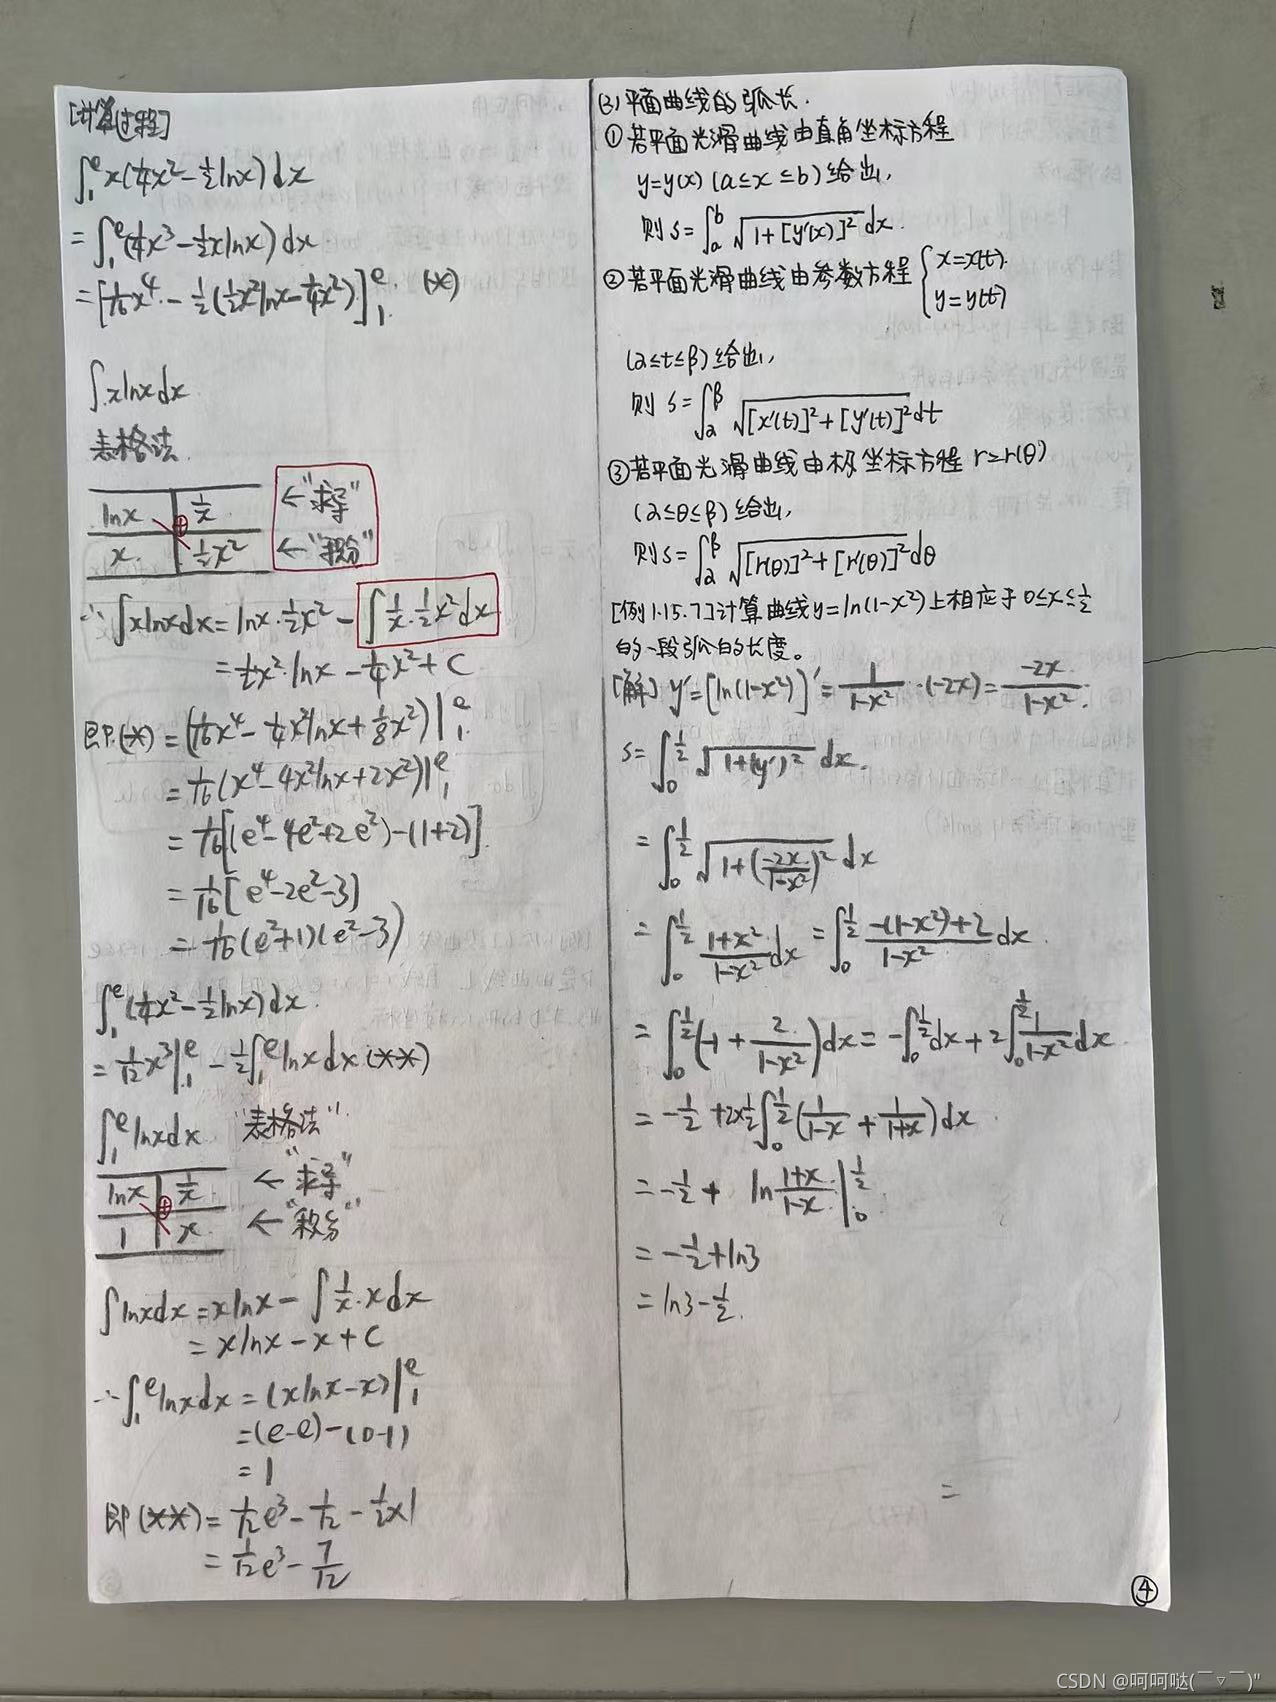 [计算过程]
∫₁ᵉ x(¼x²-½lnx)dx
=∫₁ᵉ(¼x³-½xlnx)dx
=[1/16x⁴-½(½x²lnx-¼x²)]₁ᵉ. (*)
∫xlnxdx
表格法
lnx 1/x ←"求导"
x ½x² ←"积分"
∴∫xlnxdx=lnx·½x²-∫1/x·½x²dx
=½x²·lnx-¼x²+C
即(*)=(1/16x⁴-¼x²lnx+⅛x²)|₁ᵉ
=1/16(x⁴-4x²lnx+2x²)|₁ᵉ
=1/16[(e⁴-4e²+2e²)-(1+2)]
=1/16[e⁴-2e²-3]
=1/16(e²+1)(e²-3)
∫₁ᵉ(¼x²-½lnx)dx
=1/12x³|₁ᵉ-½∫₁ᵉlnxdx(**)
∫₁ᵉlnxdx "表格法"
lnx 1/x ←"求导"
1 x ←"积分"
∫lnxdx=xlnx-∫1/x·xdx
=xlnx-x+C
∴∫₁ᵉlnxdx=(xlnx-x)|₁ᵉ
=(e-e)-(0-1)
=1
即(**)=1/12e³-1/12-½×1
=1/12e³-7/12
(3)平面曲线的弧长.
①若平面光滑曲线由直角坐标方程
y=y(x)(a≤x≤b)给出,
则s=∫ₐᵇ√(1+[y'(x)]²)dx.
②若平面光滑曲线由参数方程{x=x(t).
y=y(t)
(α≤t≤β)给出,
则s=∫_α^β√([x'(t)]²+[y'(t)]²)dt
③若平面光滑曲线由极坐标方程r=r(θ)
(α≤θ≤β)给出,
则s=∫_α^β√([r(θ)]²+[r'(θ)]²)dθ
[例1.15.7]计算曲线y=ln(1-x²)上相应于0≤x≤½
的一段弧的长度。
[解]y'=[ln(1-x²)]'=1/(1-x²)·(-2x)=-2x/(1-x²).
s=∫₀^½√(1+(y')²)dx.
=∫₀^½√(1+(-2x/(1-x²))²)dx
=∫₀^½(1+x²)/(1-x²)dx=∫₀^½(-(1-x²)+2)/(1-x²)dx.
=∫₀^½(-1+2/(1-x²))dx=-∫₀^½dx+2∫₀^½1/(1-x²)dx
=-½+2×½∫₀^½(1/(1-x)+1/(1+x))dx
=-½+ln(1+x)/(1-x)|₀^½
=-½+ln3
=ln3-½.
=
④
CSDN @呵呵哒(￣▽￣)"